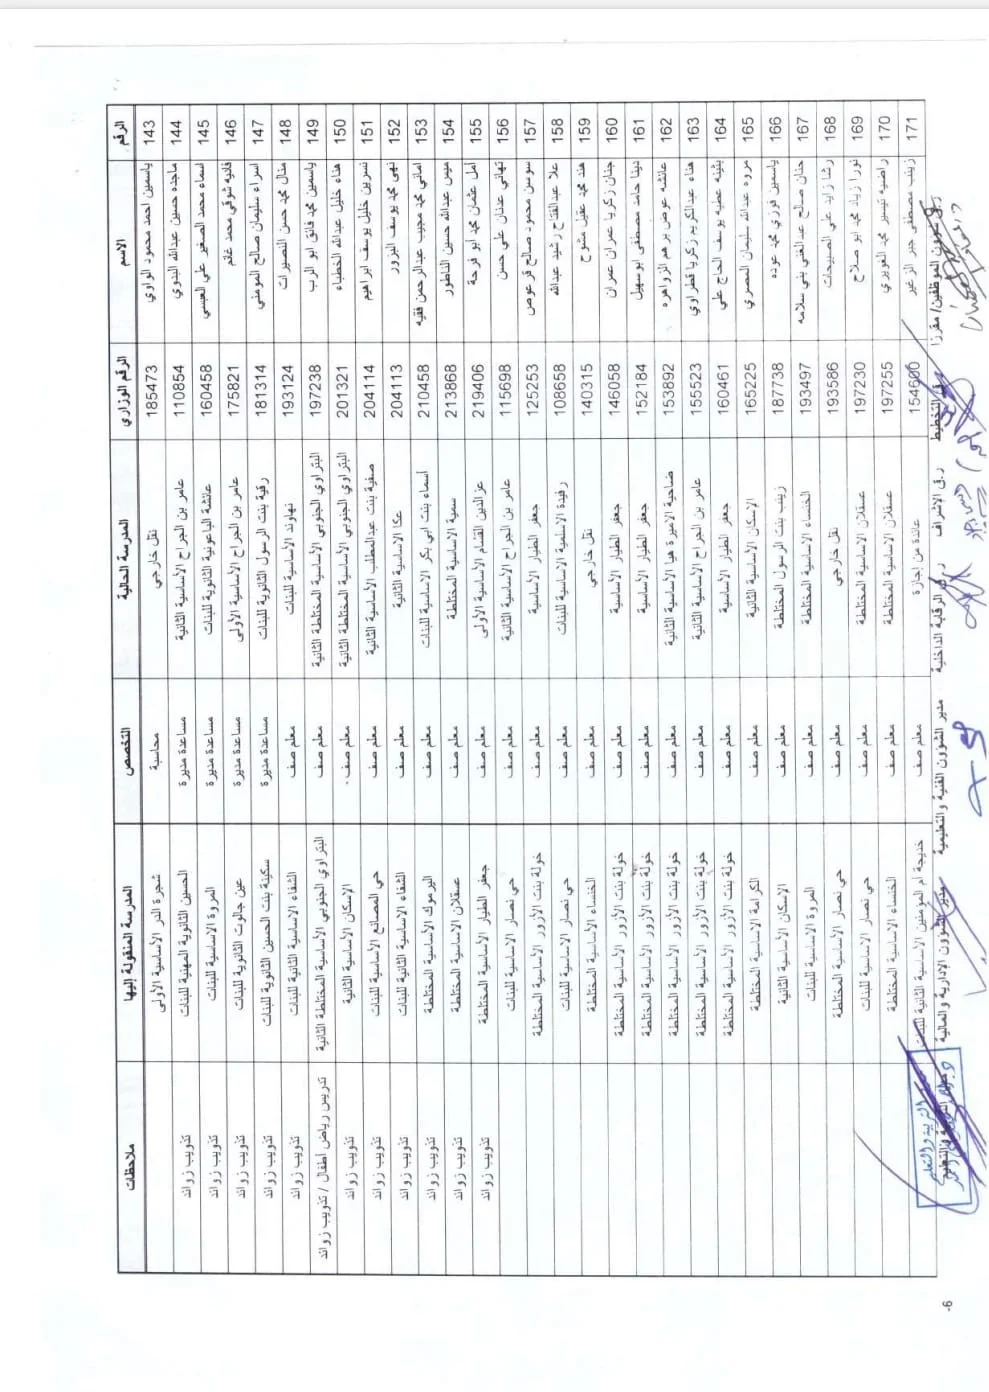 الرقم الاسم الرقم الوزاري المدرسة الحالية التخصص المدرسة المنقولة إليها ملاحظات
143 ياسمين احمد محمود الراوي 185473 نقل خارجي محاسبة شجرة الدر الأساسية الأولى
144 ماجده حسين عبدالله البدوي 110854 عامر بن الجراح الأساسية الثانية مساعدة مديرة الحسين الثانوية المهنية للبنات تذويب زوائد
145 اسماء محمد الصغير علي العيسي 160458 عائشة الباعونية الثانوية للبنات مساعدة مديرة المروة الاساسية للبنات تذويب زوائد
146 فاديه شوقي محمد غانم 175821 عامر بن الجراح الأساسية الأولى مساعدة مديرة عين جالوت الثانوية للبنات تذويب زوائد
147 اسراء سليمان صالح المومني 181314 رقية بنت الرسول الثانوية للبنات مساعدة مديرة سكينة بنت الحسين الثانوية للبنات تذويب زوائد
148 منال محمد حسن النصيرات 193124 نهاوند الأساسية للبنات معلم صف الشفاء الاساسية الثانية للبنات تذويب زوائد
149 ياسمين محمد فائق ابو الرب 197238 البتراوي الجنوبي الأساسية المختلطة الثانية معلم صف البتراوي الجنوبي الأساسية المختلطة الثانية تدريس رياض أطفال / تذويب زوائد
150 هناء خليل عبدالله الخطباء 201321 البتراوي الجنوبي الأساسية المختلطة الثانية معلم صف الإسكان الأساسية الثانية تذويب زوائد
151 نسرين خليل يوسف ابراهيم 204114 صفية بنت عبدالمطلب الأساسية الثانية معلم صف حي المصانع الأساسية للبنات تذويب زوائد
152 نهى محمد يوسف البزور 204113 عكا الاساسية الثانية معلم صف الشفاء الاساسية الثانية للبنات تذويب زوائد
153 اماني محمد مجيب عبدالرحمن فقيه 210458 أسماء بنت ابي بكر الاساسية للبنات معلم صف اليرموك الأساسية المختلطة تذويب زوائد
154 ميس عبدالله حسين الناطور 213868 سمية الاساسية المختلطة معلم صف عسقلان الاساسية المختلطة تذويب زوائد
155 أمل عثمان محمد ابو فرحة 219406 عزالدين القسام الأساسية الأولى معلم صف جعفر الطيار الأساسية المختلطة تذويب زوائد
156 تهاني عدنان علي حسن 115698 عامر بن الجراح الأساسية الثانية معلم صف حي نصار الاساسية للبنات
157 سوسن محمود صالح قرعوص 125253 جعفر الطيار الأساسية معلم صف خولة بنت الأزور الأساسية المختلطة
158 علا عبدالفتاح رشيد عبدالله 108658 رفيدة الاسلمية الاساسية للبنات معلم صف حي نصار الاساسية للبنات
159 هند محمد عقيل مشوح 140315 نقل خارجي معلم صف الخنساء الاساسية المختلطة
160 جنان زكريا عمران عمران 146058 جعفر الطيار الأساسية معلم صف خولة بنت الأزور الأساسية المختلطة
161 دينا حامد مصطفى ابوسهيل 152184 جعفر الطيار الأساسية معلم صف خولة بنت الأزور الأساسية المختلطة
162 عائشه عوض برهم الزواهره 153892 ضاحية الاميرة هيا الأساسية الثانية معلم صف خولة بنت الأزور الأساسية المختلطة
163 هناء عبدالكريم زكريا قطراوي 155523 عامر بن الجراح الأساسية الثانية معلم صف خولة بنت الأزور الأساسية المختلطة
164 بثينه عطيه يوسف الحاج علي 160461 جعفر الطيار الأساسية معلم صف خولة بنت الأزور الأساسية المختلطة
165 مروه عبدالله سليمان المصري 165225 الإسكان الأساسية الثانية معلم صف الكرامة الاساسية المختلطة
166 ياسمين فوزي محمد عوده 187738 زينب بنت الرسول المختلطة معلم صف الإسكان الأساسية الثانية
167 حنان صالح عبدالغني بني سلامه 193497 الخنساء الاساسية المختلطة معلم صف المروة الاساسية للبنات
168 رشا زايد علي الصبيحات 193586 نقل خارجي معلم صف حي نصار الأساسية المختلطة
169 نورا زياد محمد ابو صلاح 197230 عسقلان الاساسية المختلطة معلم صف حي نصار الاساسية للبنات
170 راضيه تيسير محمد العويري 197255 عسقلان الاساسية المختلطة معلم صف الخنساء الاساسية المختلطة
171 زينب مصطفى جبر الزغير 154600 عائدة من إجازة معلم صف خديجة أم المؤمنين الاساسية الثانية للبنات
شؤون الموظفين/ مفرزا التخطيط ر.ق الاشراف الرقابة الداخلية مدير الشؤون الفنية والتعليمية مدير الشؤون الإدارية والمالية
التربية والتعليم
6-